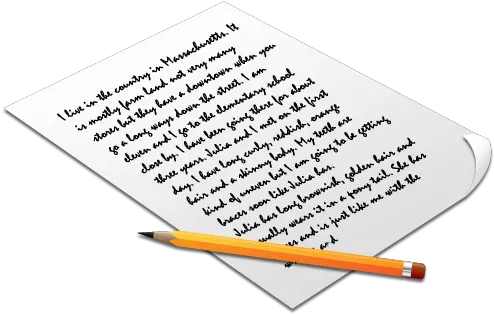 I live in the country in Massachusetts. It
is mostly farm land not very many
stores but they have a downtown when you
go a long way down the street. I am
eleven and I go to the elementary school
close by. I have been going there for about
three years. Julia and I met on the first
day. I have long curly, reddish, orange
hair and a skinny body. My teeth are
kind of uneven but I am going to be getting
braces soon like Julia has.
Julia has long brownish, golden hair and
usually wears it in a pony tail. She has
and is just like me with the
and